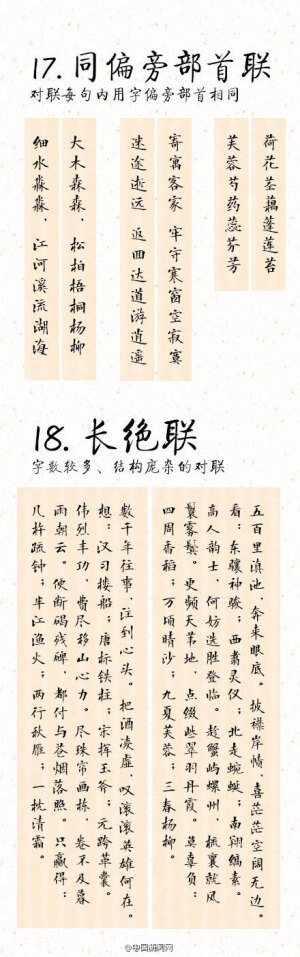 17.同偏旁部首联
对联每句内用字偏旁部首相同
荷花茎藕蓬莲苔
芙蓉芍药蕊芬芳
寄寓客家 牢守寒窗空寂寞
迷途逝远 返回达道游逍遥
大木森森，松柏梧桐杨柳
细水淼淼，江河溪流湖海
18.长绝联
字数较多、结构庞杂的对联
五百里滇池，奔来眼底。披襟岸帻，喜茫茫空阔无边。
看：东骧神骏；西翥灵仪；北走蜿蜒；南翔缟素。
高人韵士，何妨选胜登临。趁蟹屿螺州，梳裹就风
鬟雾鬓。更频天苇地，点缀些翠羽丹霞。莫辜负：
四周香稻；万顷晴沙；九夏芙蓉；三春杨柳。
数千年往事，注到心头。把酒凌虚，叹滚滚英雄何在。
想：汉习楼船；唐标铁柱；宋挥玉斧；元跨革囊。
伟烈丰功，费尽移山心力。尽珠帘画栋，卷不及暮
雨朝云。便断碣残碑，都付与苍烟落照。只赢得：
几杵疏钟；半江渔火；两行秋雁；一枕清霜。
@中国新闻网